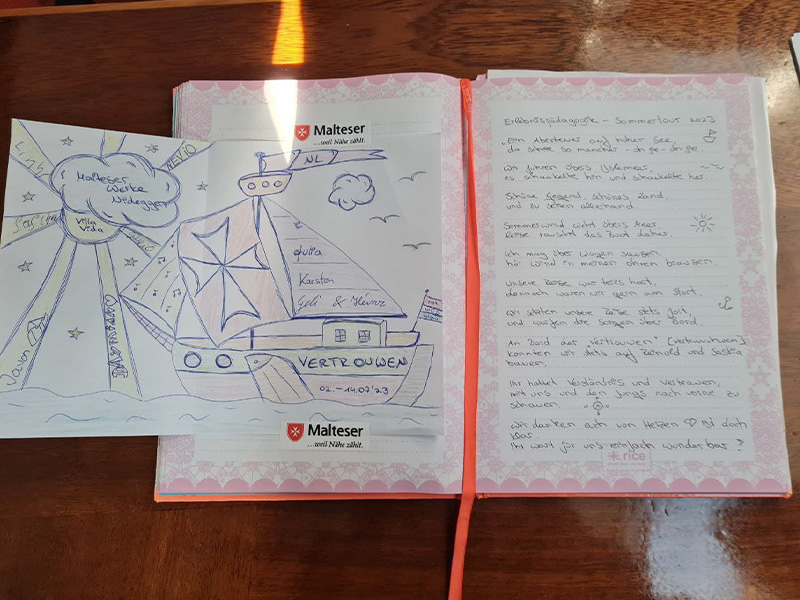 Malteser
...weil Nähe zählt.
NL
Malteser
Werke
Nideggen
Villa
Vida
Julia
Karsten
Geli & Heinz
VERTROUWEN
02. - 14.07.'23
Malteser
...weil Nähe zählt.
Erlebnispädagogik - Sommertour 2023
"Ein Abenteuer auf hoher See,
da stöhnte so mancher - oh je - oh je.
Wir fuhren übers Ijsselmeer,
es schaukelte hin und schaukelte her.
Schöne Gegend, schönes Land,
und zu sehen allerhand.
Sommerwind weht übers Meer,
leise rauscht das Boot daher.
Ich mag über Wogen sausen,
hör Wind in meinen Ohren brausen.
Unsere Reise war teils hart,
dennoch waren wir gern am Start.
Wir setzten unsere Reise stets fort,
und warfen die Sorgen über Bord.
An Bord der "Vertrouwen"
konnten wir stets auf Reinold und Saskia
bauen.
Ihr hattet Verständnis und Vertrauen,
mit uns und den Jungs nach vorne zu
schauen.
Wir danken euch von Herzen ist doch
klar,
Ihr wart für uns einfach wunderbar!"
rice